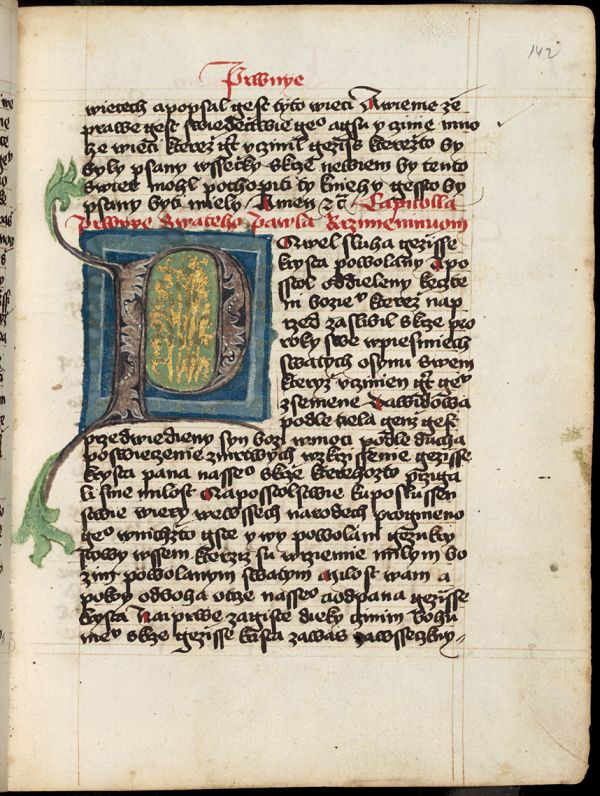 142
Prwnye
wietech a popsal gest tyto wieci A wieme ze
prawe gest swiedectwie geo a gsu y gine mno
he wieci kterez gt vcinil gezis ktereżto by
byly psany wssecky skrze newiem by tento
swiet mohl pochopiti ty knihy gessto by
psany byti mieli Amen Capitolla
Prwnye Swateho Pawla Rzimeninuom
Awel sluha gezisse
krysta powolany Apo
sstol oddieleny kecte
ni bozie kterez nap
rzed zaslibil skrze pro
roky swe w piesmiech
swatych o synu swem
kteryz vczinien gt gey
z semene Dawidowa
podle tiela genz gest
przedwiedieny syn bozi w moci podle ducha
poswieczenie z mrtwych wzkrzissenie gezisse
krysta pana nasseo skrze kterehozto przigia
li sme milost A aposstolstwie ku poslussen
stwie wiery we wssech narodech pro gmeno
geo w nichzto gste y wy powolani gezukry
stowy wssem kterziz su w rziemie milym bo
zim powolanym swatym Milost wam a
pokoy od boha otce nasseo a od pana gezisse
krysta Nayprwe zagiste dieky czinim bohu
mey skrze gezisse krista za was za wsseczkny